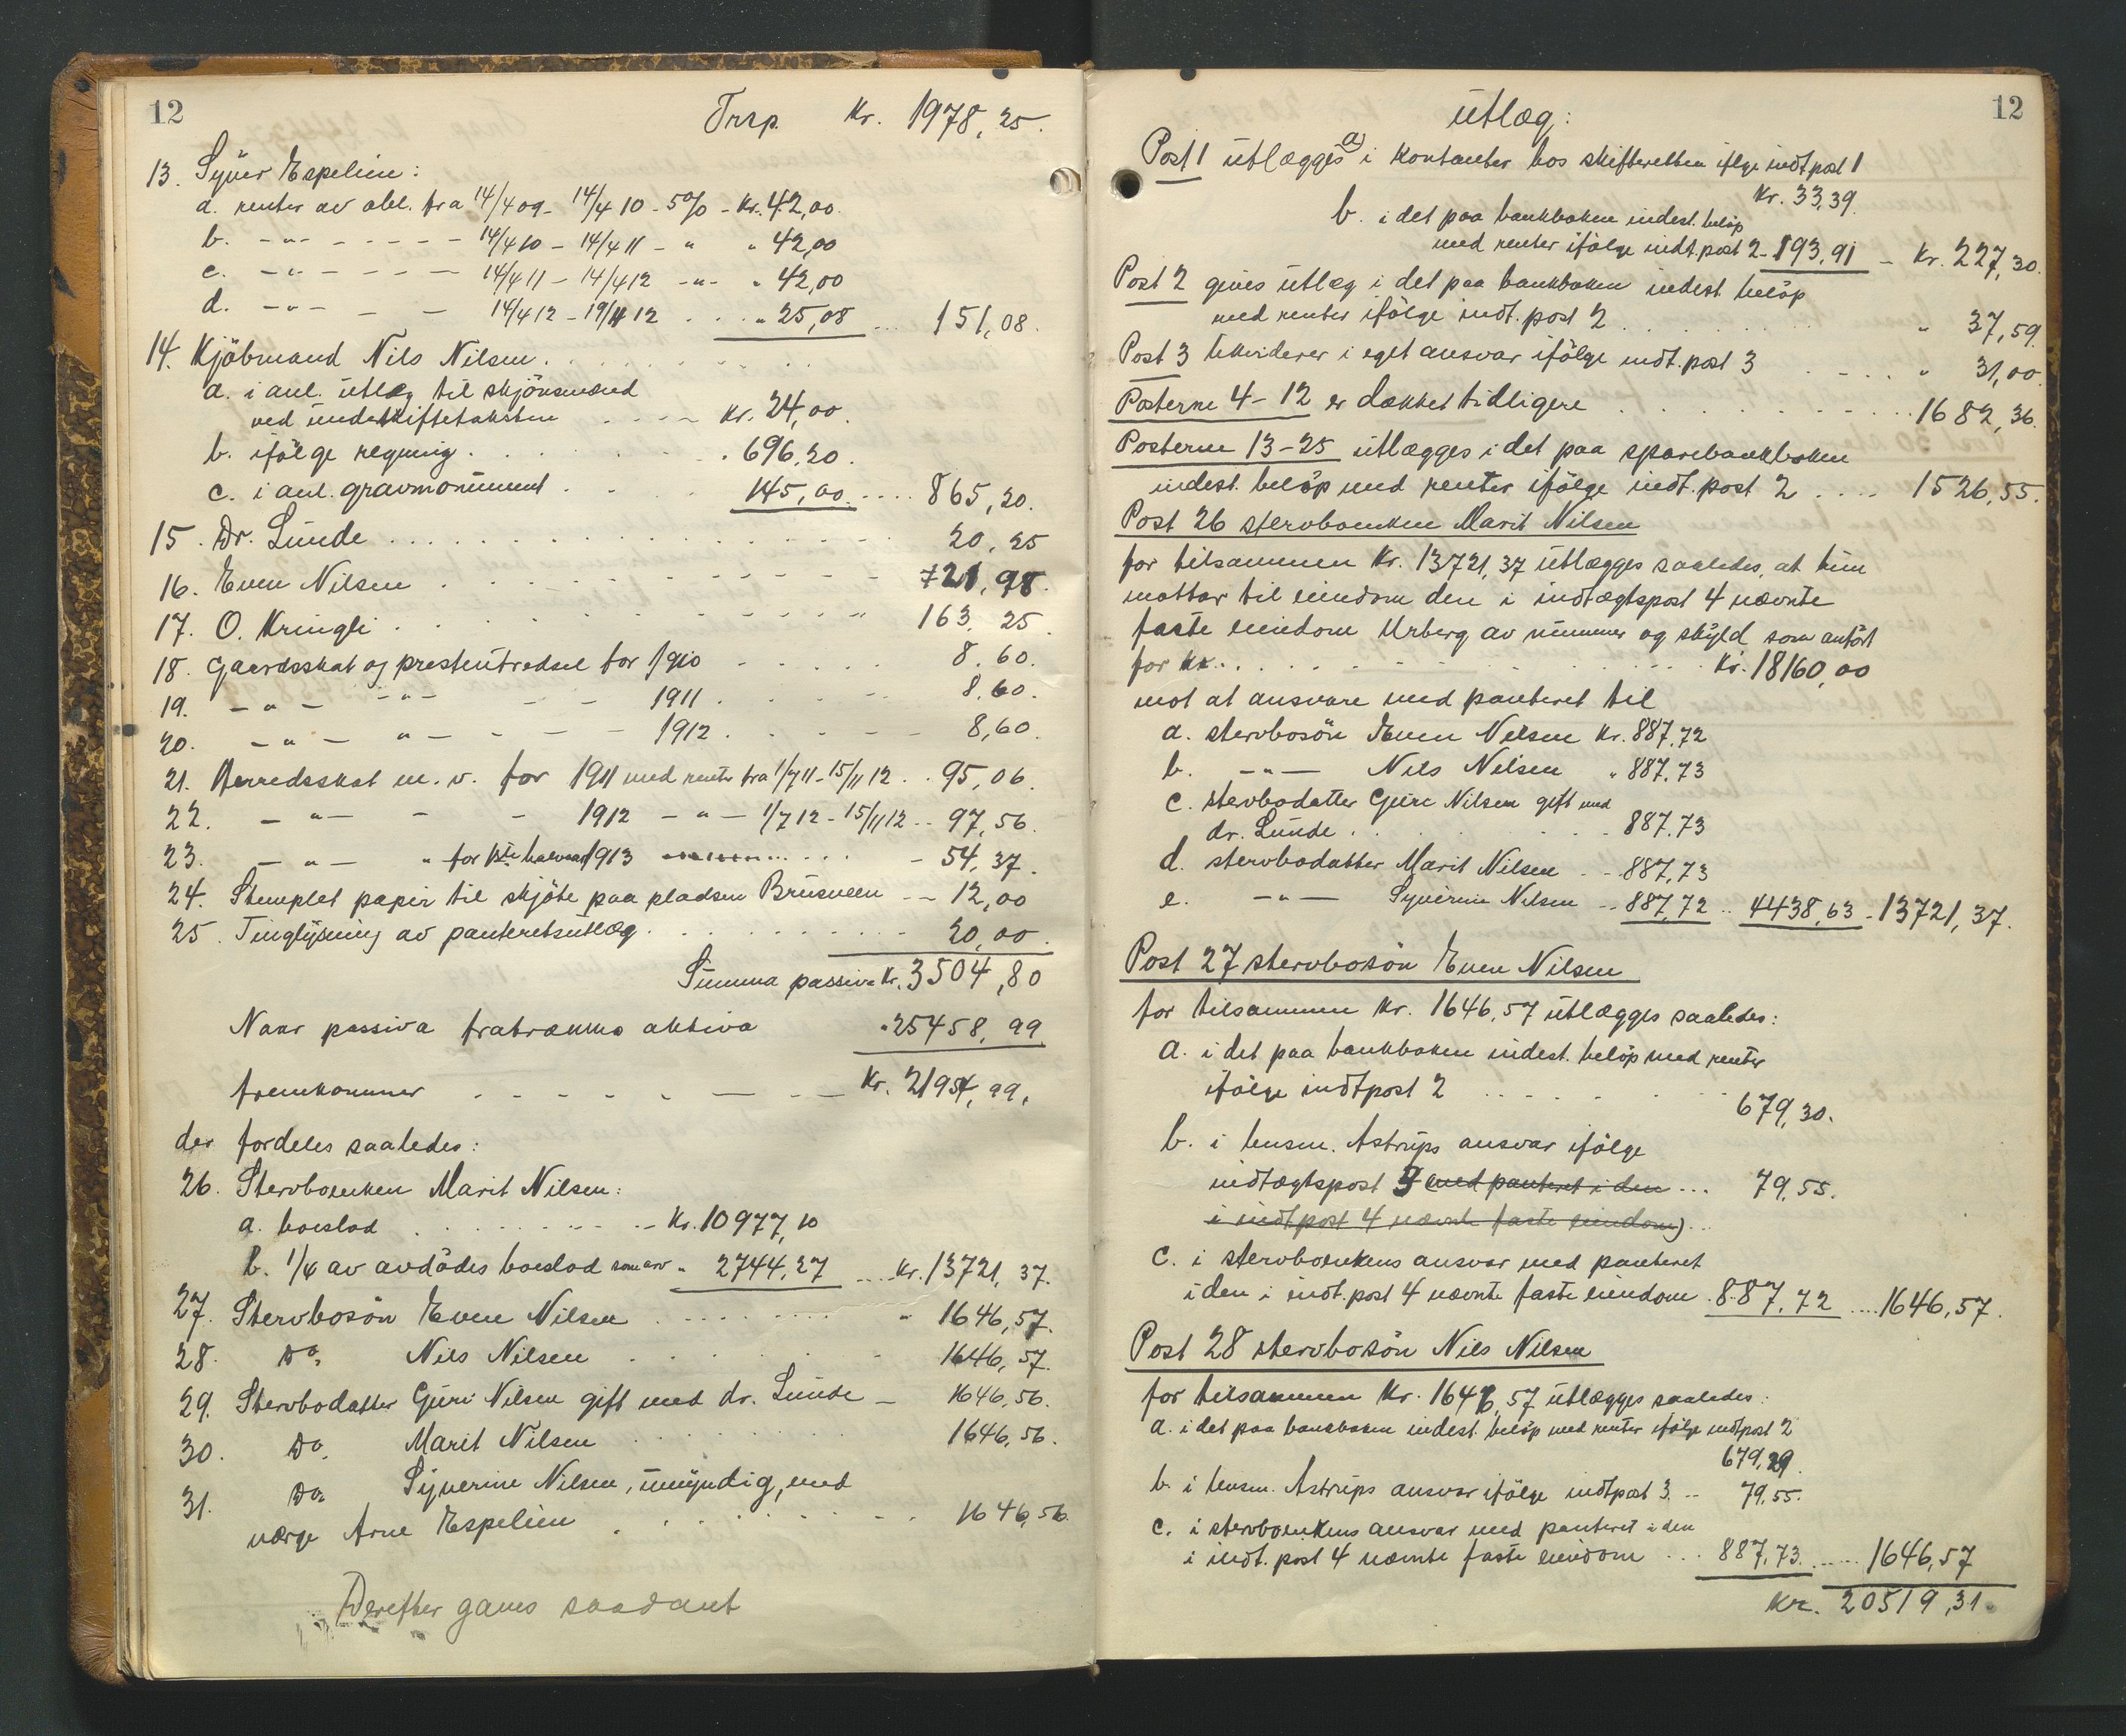 12
Trsp. Kr. 1978,25.
13. Syver Espelien:
a. renter av obl. fra 14/4 09 - 14/4 10 - 5% - Kr. 42,00.
b. - " - - - - - 14/4 10 - 14/4 11 - " " 42,00
c. - " - - - - 14/4 11 - 14/4 12 - " - " 42,00
d. - " - - - 14/4 12 - 19/11 12 . . . " 25,08 ... 151,08.
14. Kjöbmand Nils Nilsen . . . . .
a. i anl. utlæg til skjönsmænd
ved underskiftetaksten . . . - Kr. 24,00.
b. ifölge regning . . . . . . 696,20.
c. i anl. gravmonument . . . . 145,00. .... 865,20.
15. Dr. Lunde . . . . . . . . . . 20,25
16. Even Nilsen . . . . . . . . . . 721,98.
17. O. Kringli . . . . . . . . . . " 163,25.
18. Gaardsskat og presteutredsel for 1910 - . . . . 8,60.
19. - " - - " - - - 1911 . . . - 8,60.
20. - " - " - - - - 1912 . . . - - 8,60.
21. Herredsskat m. v. for 1911 med renter fra 1/7 11 - 15/11 12 . . 95,06.
22. - " - - - 1912 - " - 1/7 12 - 15/11 12 - - 97,56.
23. - " - " for 1ste halvaar 1913 . . . - 54,37.
24. Stemplet papir til skjöte paa pladsen Brusveen - - 12,00
25. Tinglysning av panteretsutlæg . . . . . . . 20,00.
Summa passiva Kr. 3504,80
Naar passiva fratrækkes aktiva " 25458,99
fremkommer - - - - - - - - Kr. 21954,99.
der fordeles saaledes:
26. Stervboenken Marit Nilsen:
a. boeslod . . . . . . - Kr. 10977,10
b. 1/4 av avdödes boeslod som arv " 2744,27 .... Kr. 13721,37.
27. Stervbosön Even Nilsen . . . . . . . . " 1646,57.
28. Do. Nils Nilsen . . . . . . - 1646,57.
29. Stervbodatter Guri Nilsen gift med dr. Lunde - 1646,56.
30. Do. Marit Nilsen . . . . . . 1646,56.
31. Do. Syverine Nilsen, umyndig, med
værge Arne Espelien . . . . . . . - 1646,56.
Derefter gaves saadant
12
Utlæg:
Post 1 utlægges a) i kontanter hos skifteretten ifölge indt post 1
Kr. 33,39.
b. i det paa bankboken indest. belöp
med renter ifölge indt. post 2 - 193,91 - Kr. 227,30.
Post 2 gives utlæg i det paa bankboken indest. belöp
med renter ifölge indt. post 2 . . . . . . " 37,59.
Post 3 likviderer i eget ansvar ifölge indt. post 3 . . . . " 31,00.
Posterne 4-12 er dækket tidligere . . . . . . . . . . 1682,36.
Posterne 13-25 utlægges i det paa sparebankboken
indest. belöp med renter ifölge indt. post 2 . . . . 1526,55.
Post 26 stervboenken Marit Nilsen
for tilsammen Kr. 13721,37 utlægges saaledes, at hun
mottar til eiendom den i indtægtspost 4 nævnte
faste eiendom Urberg av nummer og skyld som anfört
for kr. . . . . . . . . . . . Kr. 18160,00
mot at ansvare med panteret til
a. stervbosön Even Nilsen Kr. 887,72
b. - " - Nils Nilsen " 887,73
c. stervbodatter Guri Nilsen gift med
dr. Lunde . . . . . . - - 887,73
d. stervbodatter Marit Nilsen - - 887,73
e. - " - Syverine Nilsen - - 887,72 .. 4438,63 - 13721,37.
Post 27 stervbosön Even Nilsen
for tilsammen Kr. 1646,57 utlægges saaledes:
a. i det paa bankboken indest. belöp med renter
ifölge indtpost 2 . . . . . . 679,30.
b. i lensm. Astrups ansvar ifölge
indtægtspost 3 (med panteret i den ... 79,55.
i indtpost 4 nævnte faste eiendom) ..
c. i stervboenkens ansvar med panteret
i den i indt. post 4 nævnte faste eiendom 887,72 .... 1646,57.
Post 28 stervbosön Nils Nilsen
for tilsammen Kr. 1646,57 utlægges saaledes:
a. i det paa bankboken indest. belöp med renter ifölge indtpost 2
679,29.
b. i lensm. Astrups ansvar ifölge indtpost 3. - - 79,55.
c. i stervboenkens ansvar med panteret i den
i indt. post 4 nævnte faste eiendom ... 887,73. .... 1646,57
Kr. 20519,31.